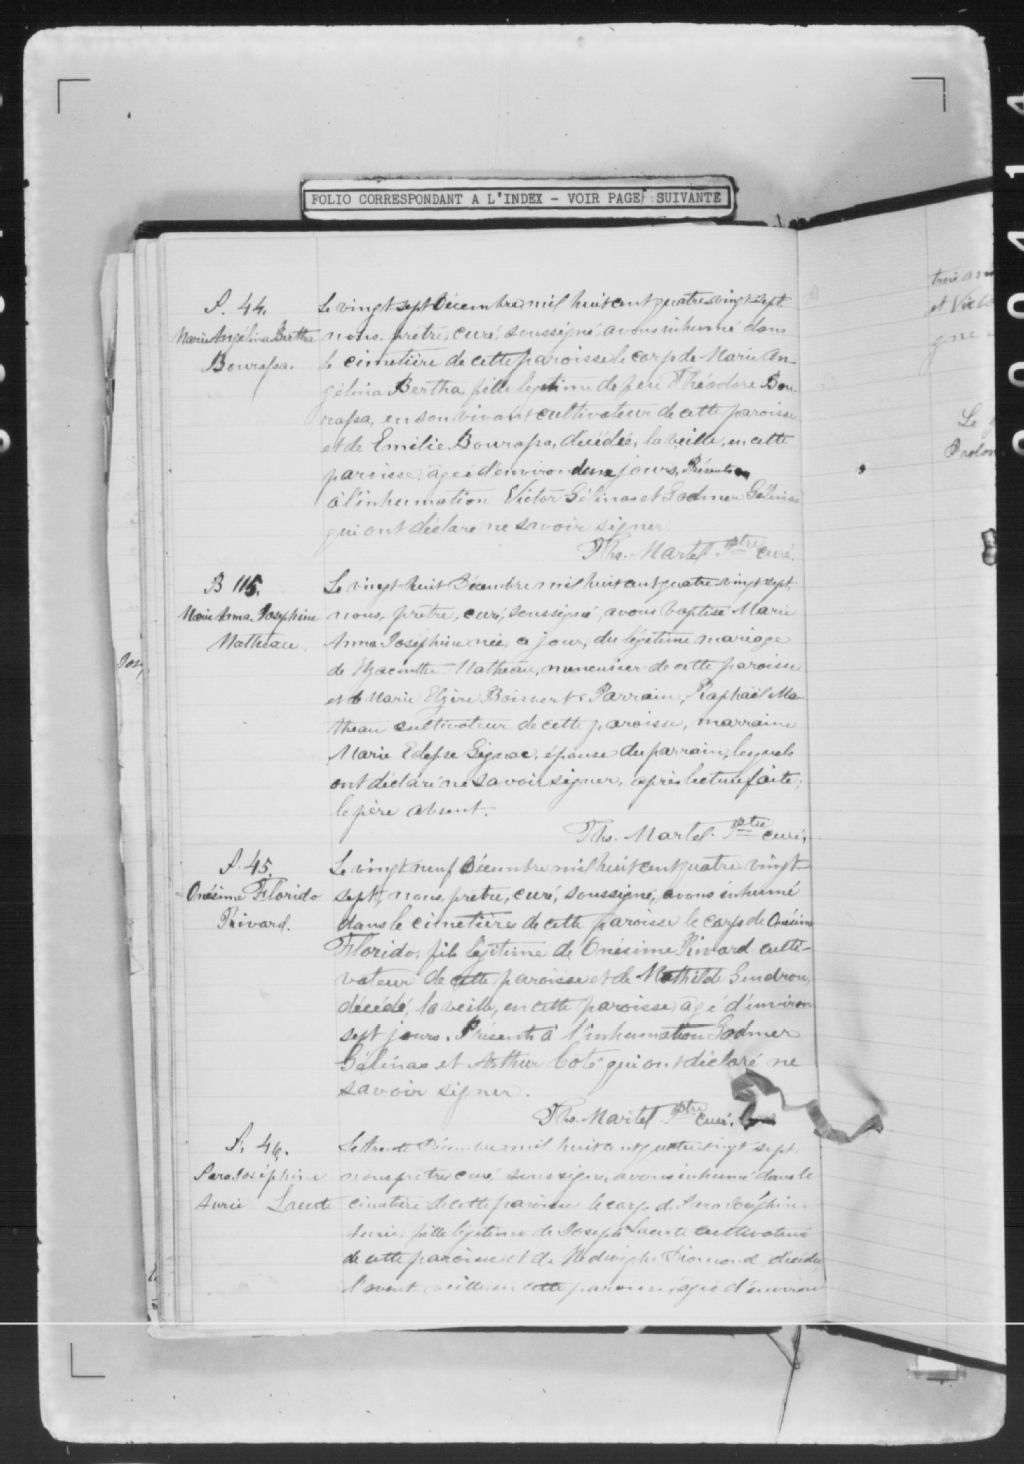 FOLIO CORRESPONDANT A L'INDEX - VOIR PAGE SUIVANTE
S. 44.
Marie Angélina Bertha
Bourassa.
Le vingt sept Décembre mil huit cent quatre vingt sept
nous, prêtre, curé, soussigné, avons inhumé dans
le cimetière de cette paroisse le corp de Marie An-
gélina Bertha, fille légitime de feu Théodore Bou-
rassa, en son vivant cultivateur de cette paroisse
et de Emilie Bourassa, décédée, la veille, en cette
paroisse, âgée d'environ jours, Présents
à l'inhumation Victor Gélinas et Gélinas
qui ont déclaré ne savoir signer
Ths. Martel Ptre curé.
B 115.
Marie Anna Joséphine
Matheau.
Le vingt-huit Décembre mil huit cent quatre vingt sept,
nous, prêtre, curé, soussigné, avons baptisé Marie
Anna Joséphine née, ce jour, du légitime mariage
de Hyacinthe Matheau, de cette paroisse
et de Marie Elzire Boisvert. Parrain, Raphaël Ma-
theau cultivateur de cette paroisse, marraine
Marie Gignac, épouse du parrain, lesquels
ont déclaré ne savoir signer, après lecture faite;
le père absent.
Ths. Martel. Ptre curé,
S. 45,
Onésime Florido
Rivard.
Le vingt neuf Décembre mil huit cent quatre vingt
sept, nous, prêtre, curé, soussigné, avons inhumé
dans le cimetière de cette paroisse le corps de Onésime
Florido, fils légitime de Onésime Rivard culti-
vateur de cette paroisse et de Mathilde Gendron,
décédé, la veille, en cette paroisse, âgé d'environ
sept jours. Présents à l'inhumation
Gélinas et Arthur Coté qui ont déclaré ne
savoir signer.
Ths. Martel Ptre curé.
S. 46.
Joséphine
Le trente Décembre mil huit cent quatre vingt sept,
nous prêtre curé, soussigné, avons inhumé dans le
cimetière de cette paroisse le corps de Joséphine
fille légitime de Joseph cultivateur
de cette paroisse et de Hedwighe décédée
l'avant veille en cette paroisse, âgée d'environ
et
Le